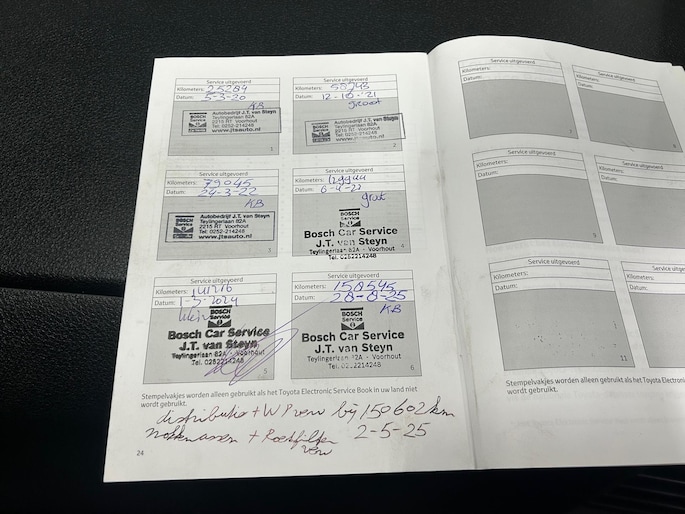 Service uitgevoerd
Kilometers: 25284
Datum: 5-3-20
KB
BOSCH Service
Autobedrijf J.T. van Steyn
Teylingerlaan 82A
2215 RT Voorhout
Tel. 0252-214248
www.jtsauto.nl
1
Service uitgevoerd
Kilometers:
Datum: 12-10-21
groot
BOSCH Service
Autobedrijf J.T. van Steyn
Teylingerlaan 82A
2215 RT Voorhout
Tel. 0252-214248
www.jtsauto.nl
2
Service uitgevoerd
Kilometers: 79045
Datum: 24-3-22
KB
BOSCH Service
Autobedrijf J.T. van Steyn
Teylingerlaan 82A
2215 RT Voorhout
Tel. 0252-214248
www.jtsauto.nl
3
Service uitgevoerd
Kilometers:
Datum:
groot
BOSCH
Service
Bosch Car Service
J.T. van Steyn
Teylingerlaan 82A - Voorhout
Tel. 0252214248
4
Service uitgevoerd
Kilometers:
Datum: 1-5-2024
klein
BOSCH
Service
Bosch Car Service
J.T. van Steyn
Teylingerlaan 82A - Voorhout
Tel. 0252214248
5
Service uitgevoerd
Kilometers: 158545
Datum: 28-8-25
KB
BOSCH
Service
Bosch Car Service
J.T. van Steyn
Teylingerlaan 82A - Voorhout
Tel. 0252214248
6
Stempelvakjes worden alleen gebruikt als het Toyota Electronic Service Book in uw land niet
wordt gebruikt.
distributie + WP verv bij 150602 km
+ Roetfilter 2-5-25
verv
24
Service uitgevoerd
Kilometers:
Datum:
7
Service uitgevoerd
Kilometers:
Datum:
8
Service uitgevoerd
Kilometers:
Datum:
9
Service uitgevoerd
Kilometers:
Datum:
Service uitgevoerd
Kilometers:
Datum:
11
Service uitgevoerd
Kilometers:
Datum:
Stempelvakjes worden alleen gebruikt als het Toyota Electronic
wordt gebruikt.